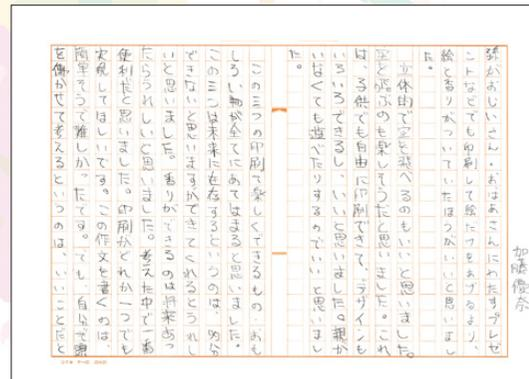 加藤優奈
孫がおじいさん・おばあさんにわたすプレゼ
ントなどでも印刷して絵だけをあげるより、
絵と香りがついていたほうがいいと思いまし
た。
立体的で空を飛べるのもいいと思いました。
空を飛ぶのも楽しそうだと思いました。これ
は、子供でも自由に印刷できて、デザインも
いろいろできるし、いいと思いました。親が
いなくても遊べたりするのでいいと思いまし
た。
この三つの印刷で楽しくできるもの、おも
しろい物が全てにあてはまると思いました。
この三つは未来に存在するというのは、多分
できないと思いますができてくれるとうれし
いと思いました。香りができるのは将来あっ
たらうれしいと思いました。考えた中で一番
便利だと思いました。印刷がどれか一つでも
実現してほしいです。この作文を書くのは、
簡単そうで難しかったです。でも、自分で頭
を働かせて考えるというのは、いいことだと